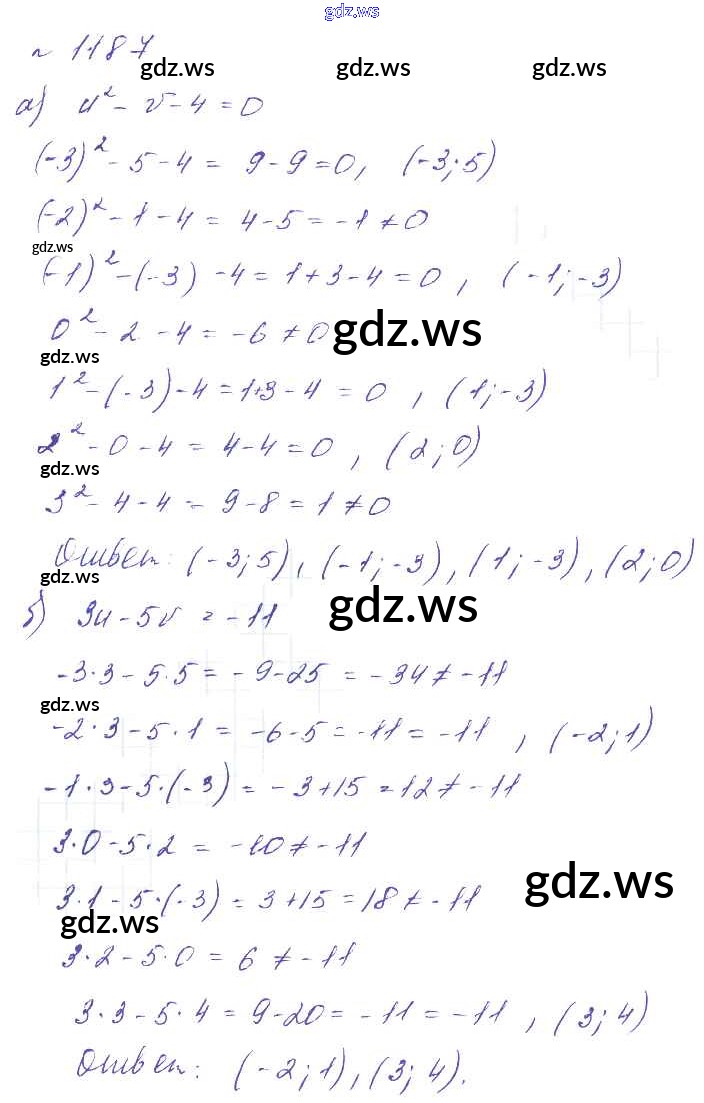 gdz.ws
№ 1187
gdz.ws gdz.ws gdz.ws
а) u² - v - 4 = 0
(-3)² - 5 - 4 = 9 - 9 = 0, (-3; 5)
(-2)² - 1 - 4 = 4 - 5 = -1 ≠ 0
gdz.ws
(-1)² - (-3) - 4 = 1 + 3 - 4 = 0 , (-1; -3)
0² - 2 - 4 = -6 ≠ 0 gdz.ws
gdz.ws
1² - (-3) - 4 = 1+3 - 4 = 0 , (1; -3)
2² - 0 - 4 = 4 - 4 = 0 , (2; 0)
gdz.ws
3² - 4 - 4 = 9 - 8 = 1 ≠ 0
Ответ: (-3; 5), (-1; -3), (1; -3), (2; 0)
gdz.ws
б) 3u - 5v = -11 gdz.ws
-3·3 - 5·5 = -9 - 25 = -34 ≠ -11
gdz.ws
-2·3 - 5·1 = -6 - 5 = -11 = -11 , (-2; 1)
-1·3 - 5·(-3) = -3 + 15 = 12 ≠ -11
3·0 - 5·2 = -10 ≠ -11
3·1 - 5·(-3) = 3 + 15 = 18 ≠ -11 gdz.ws
gdz.ws
3·2 - 5·0 = 6 ≠ -11
3·3 - 5·4 = 9 - 20 = -11 = -11 , (3; 4)
Ответ: (-2; 1), (3; 4).